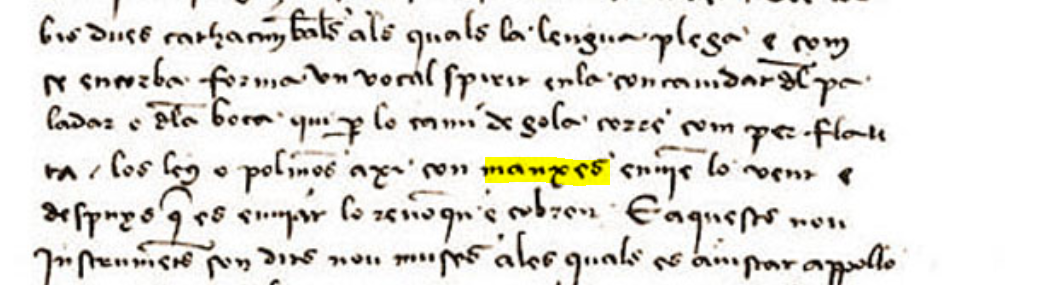 bis dues cathacimbals als quals la lengua plega e com
se encorba forma vn vocal spirit enla concauidat dl pa
ladar e dla boca qui p lo cami de gola corre com per flau
ta / los leus o polmōs axi con manxes enuie lo vent e
despuys q̄ es enuiat lo reuoquē e cobren E aquests nou
Instrumēts son dits nou muses ales quals es aiustat appollo